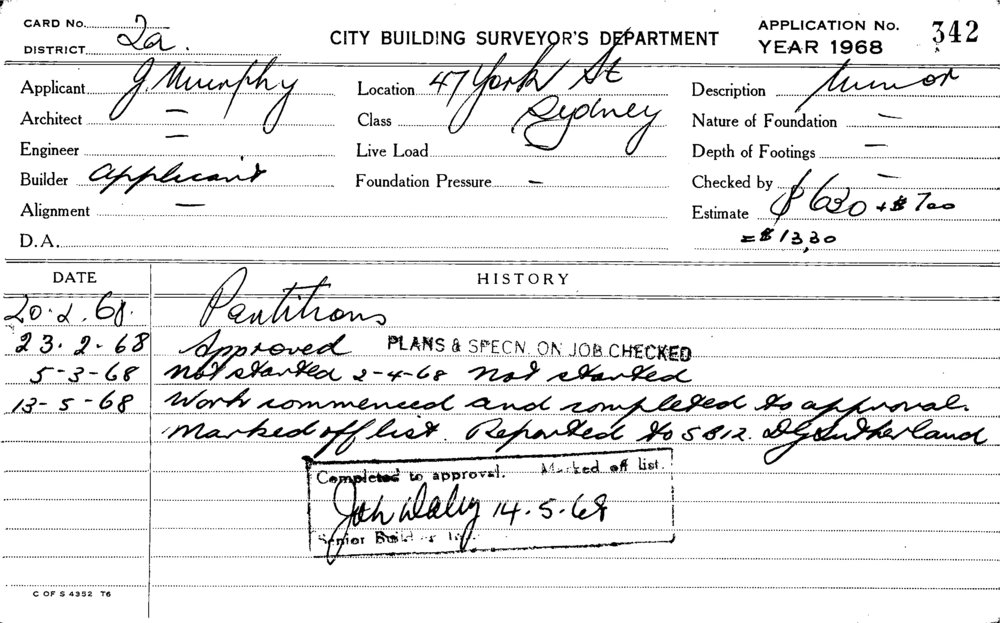 CARD No.
DISTRICT 2a.
CITY BUILDING SURVEYOR'S DEPARTMENT
APPLICATION No. 342
YEAR 1968
Applicant J. Murphy
Location 47 York St
Sydney
Description Minor
Architect —
Class
Nature of Foundation —
Engineer —
Live Load
Depth of Footings —
Builder Applicant
Foundation Pressure —
Checked by —
Alignment —
Estimate $630 + $700
= $13,30
D.A.
DATE HISTORY
20.2.68. Partitions
23.2-68 Approved PLANS & SPECN. ON JOB CHECKED
5-3-68 Not started 2-4-68 Not started
13-5-68 Work commenced and completed to approval.
Marked off list. Reported to SB12. DG Sutherland
Completed to approval. Marked off list.
14.5.68
Senior Build
C OF S 4352 T6